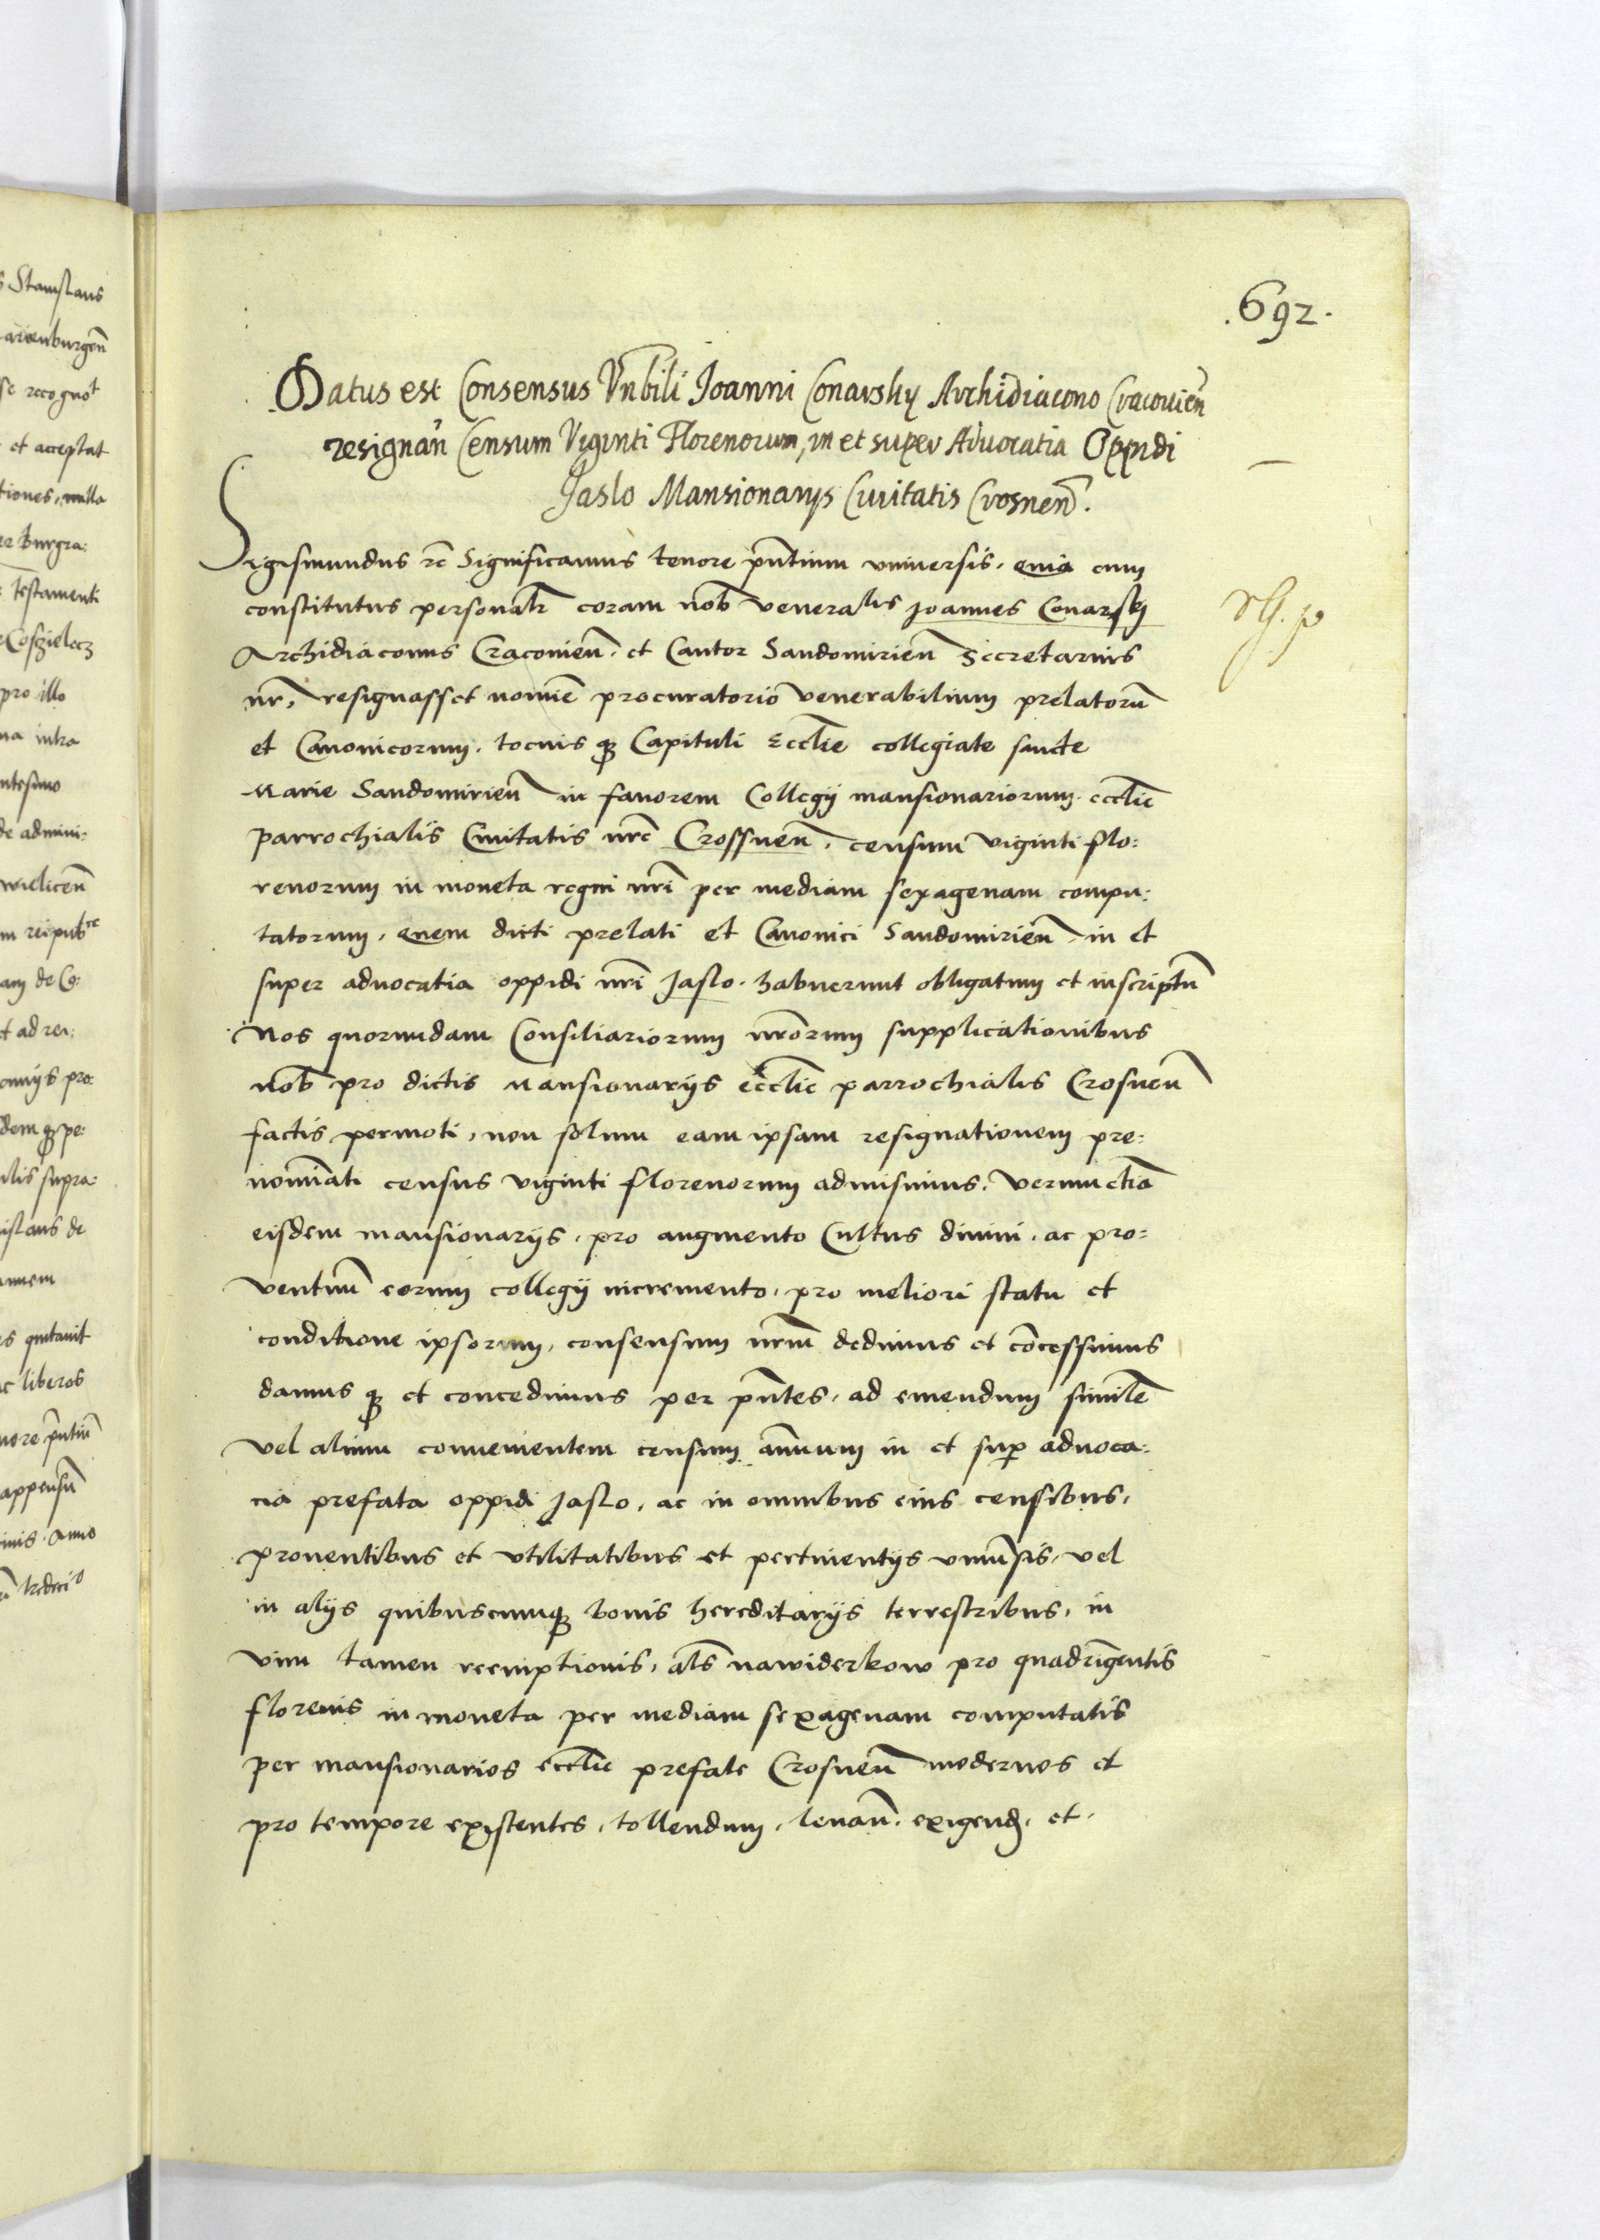 .692.
Datus est Consensus Vnbili Joanni Conarsky Archidiacono Cracouien̄
resignan̄ Censum Viginti Florenorum, in et super Aduocatia Oppidi
Jaslo Mansionarys Ciuitatis Crosnen̄.
Sigismundus rc Significamus tenore pn̄tium vniuersis, quia cum
constitutus personalr̄ coram nob̄ veneralis Joannes Conarskj
Archidiaconus Cracouien̄. et Cantor Sandomirien̄ Secretarius
nr̄, resignasset nomīe procuratorio venerabilium prelatorū
et Canonicorum. tocius qꝫ Capituli Eccl̄ie collegiate sancte
Marie Sandomirien̄ in fauorem Collegij mansionariorum. eccl̄ie
parrochialis Ciuitatis nrē Crossnen̄. censum viginti flo:
renorum in moneta regni nrī per mediam sexagenam compu:
tatorum, quem dicti prelati et Canonici Sandomirien̄ in et
super aduocatia oppidi nrī Jaslo. habuerunt obligatum et inscriptū
Nos quorundam Consiliariorum nrōrum supplicationibus
nob̄ pro dictis Mansionarijs eccl̄ie parrochialis Crosnen̄
factis permoti, non solum eam ipsam resignationem pre:
nomīati census viginti florenorum admisimus. verum etiā
eisdem mansionarijs, pro augmento Cultus diuini, ac pro:
uentuū eorum collegij incremento, pro meliori statu et
conditione ipsorum, consensum nrūm dedimus et cōcessimus
damus qꝫ et concedimus per pn̄tes, ad emendum similē
vel alium conuenientem censum an̄uum in et sup̱ aduoca:
cia prefata oppidi Jaslo, ac in omnibus eius censibus,
prouentibus et vtilitatibus et pertinentijs vniuersis, vel
in alijs quibuscumqꝫ bonis hereditarijs terrestribus, in
vim tamen reemptionis, als̄ nawiderkow pro quadrīgentis
florenis in moneta per mediam sexagenam computatis
per mansionarios eccl̄ie prefate Crosnen̄ modernos et
pro tempore existentes, tollendum, leuan̄. exigend̄. et.